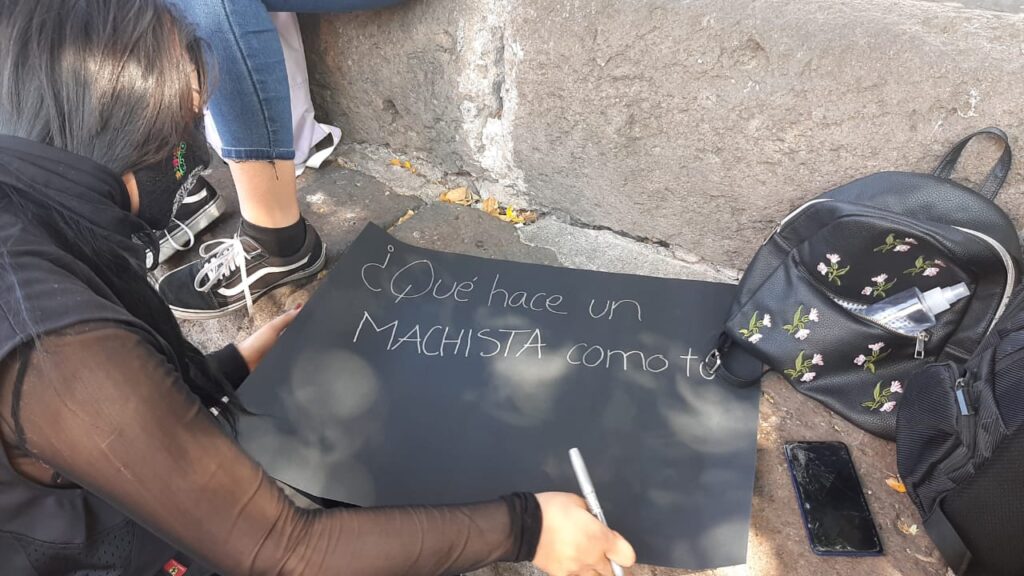 ¿Qué hace un
MACHISTA como tú